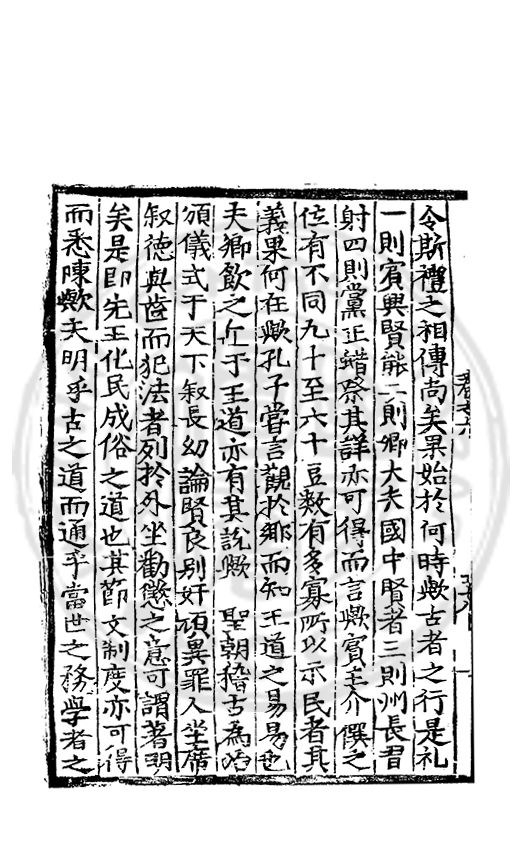 令斯禮之相傳尚矣果始於何時歟古者之行是礼
一則賔興賢能二則鄉大夫國中賢者三則州長君
射四則黨正蜡祭其詳亦可得而言歟賔主介僎之
位有不同九十至六十豆数有多寡所以示民者其
義果何在歟孔子嘗言觀扵鄉而知王道之易易也
夫鄉飲之在于王道亦有其說歟 聖朝稽古為治
頒儀式于天下叙長㓜論賢良别奸頑異罪人坐席
叙德與齒而犯法者列扵外坐勸懲之意可謂著明
矣是即先王化民成俗之道也其節文制度亦可得
而悉陳歟夫明乎古之道而通乎當世之務學者之